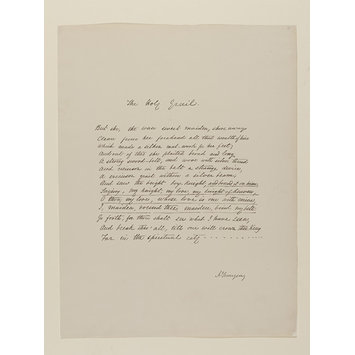 The Holy Grail.
But she, the wan sweet maiden, shore away
Clean from her forehead all that wealth of hair
Which made a silken mat-work for her feet;
And out of this she plaited broad and long
A strong sword-belt, and wove with silver thread
And crimson in the belt a strange device,
A crimson grail within a silver beam;
And saw the bright boy-knight, and bound it on him,
Saying, My knight, my love, my knight of heaven,
O thou, my love, whose love is one with mine,
I, maiden, round thee, maiden, bind my belt.
Go forth, for thou shalt see what I have seen,
And break thro' all, till one will crown thee king
Far in the spiritual city
A Tennyson